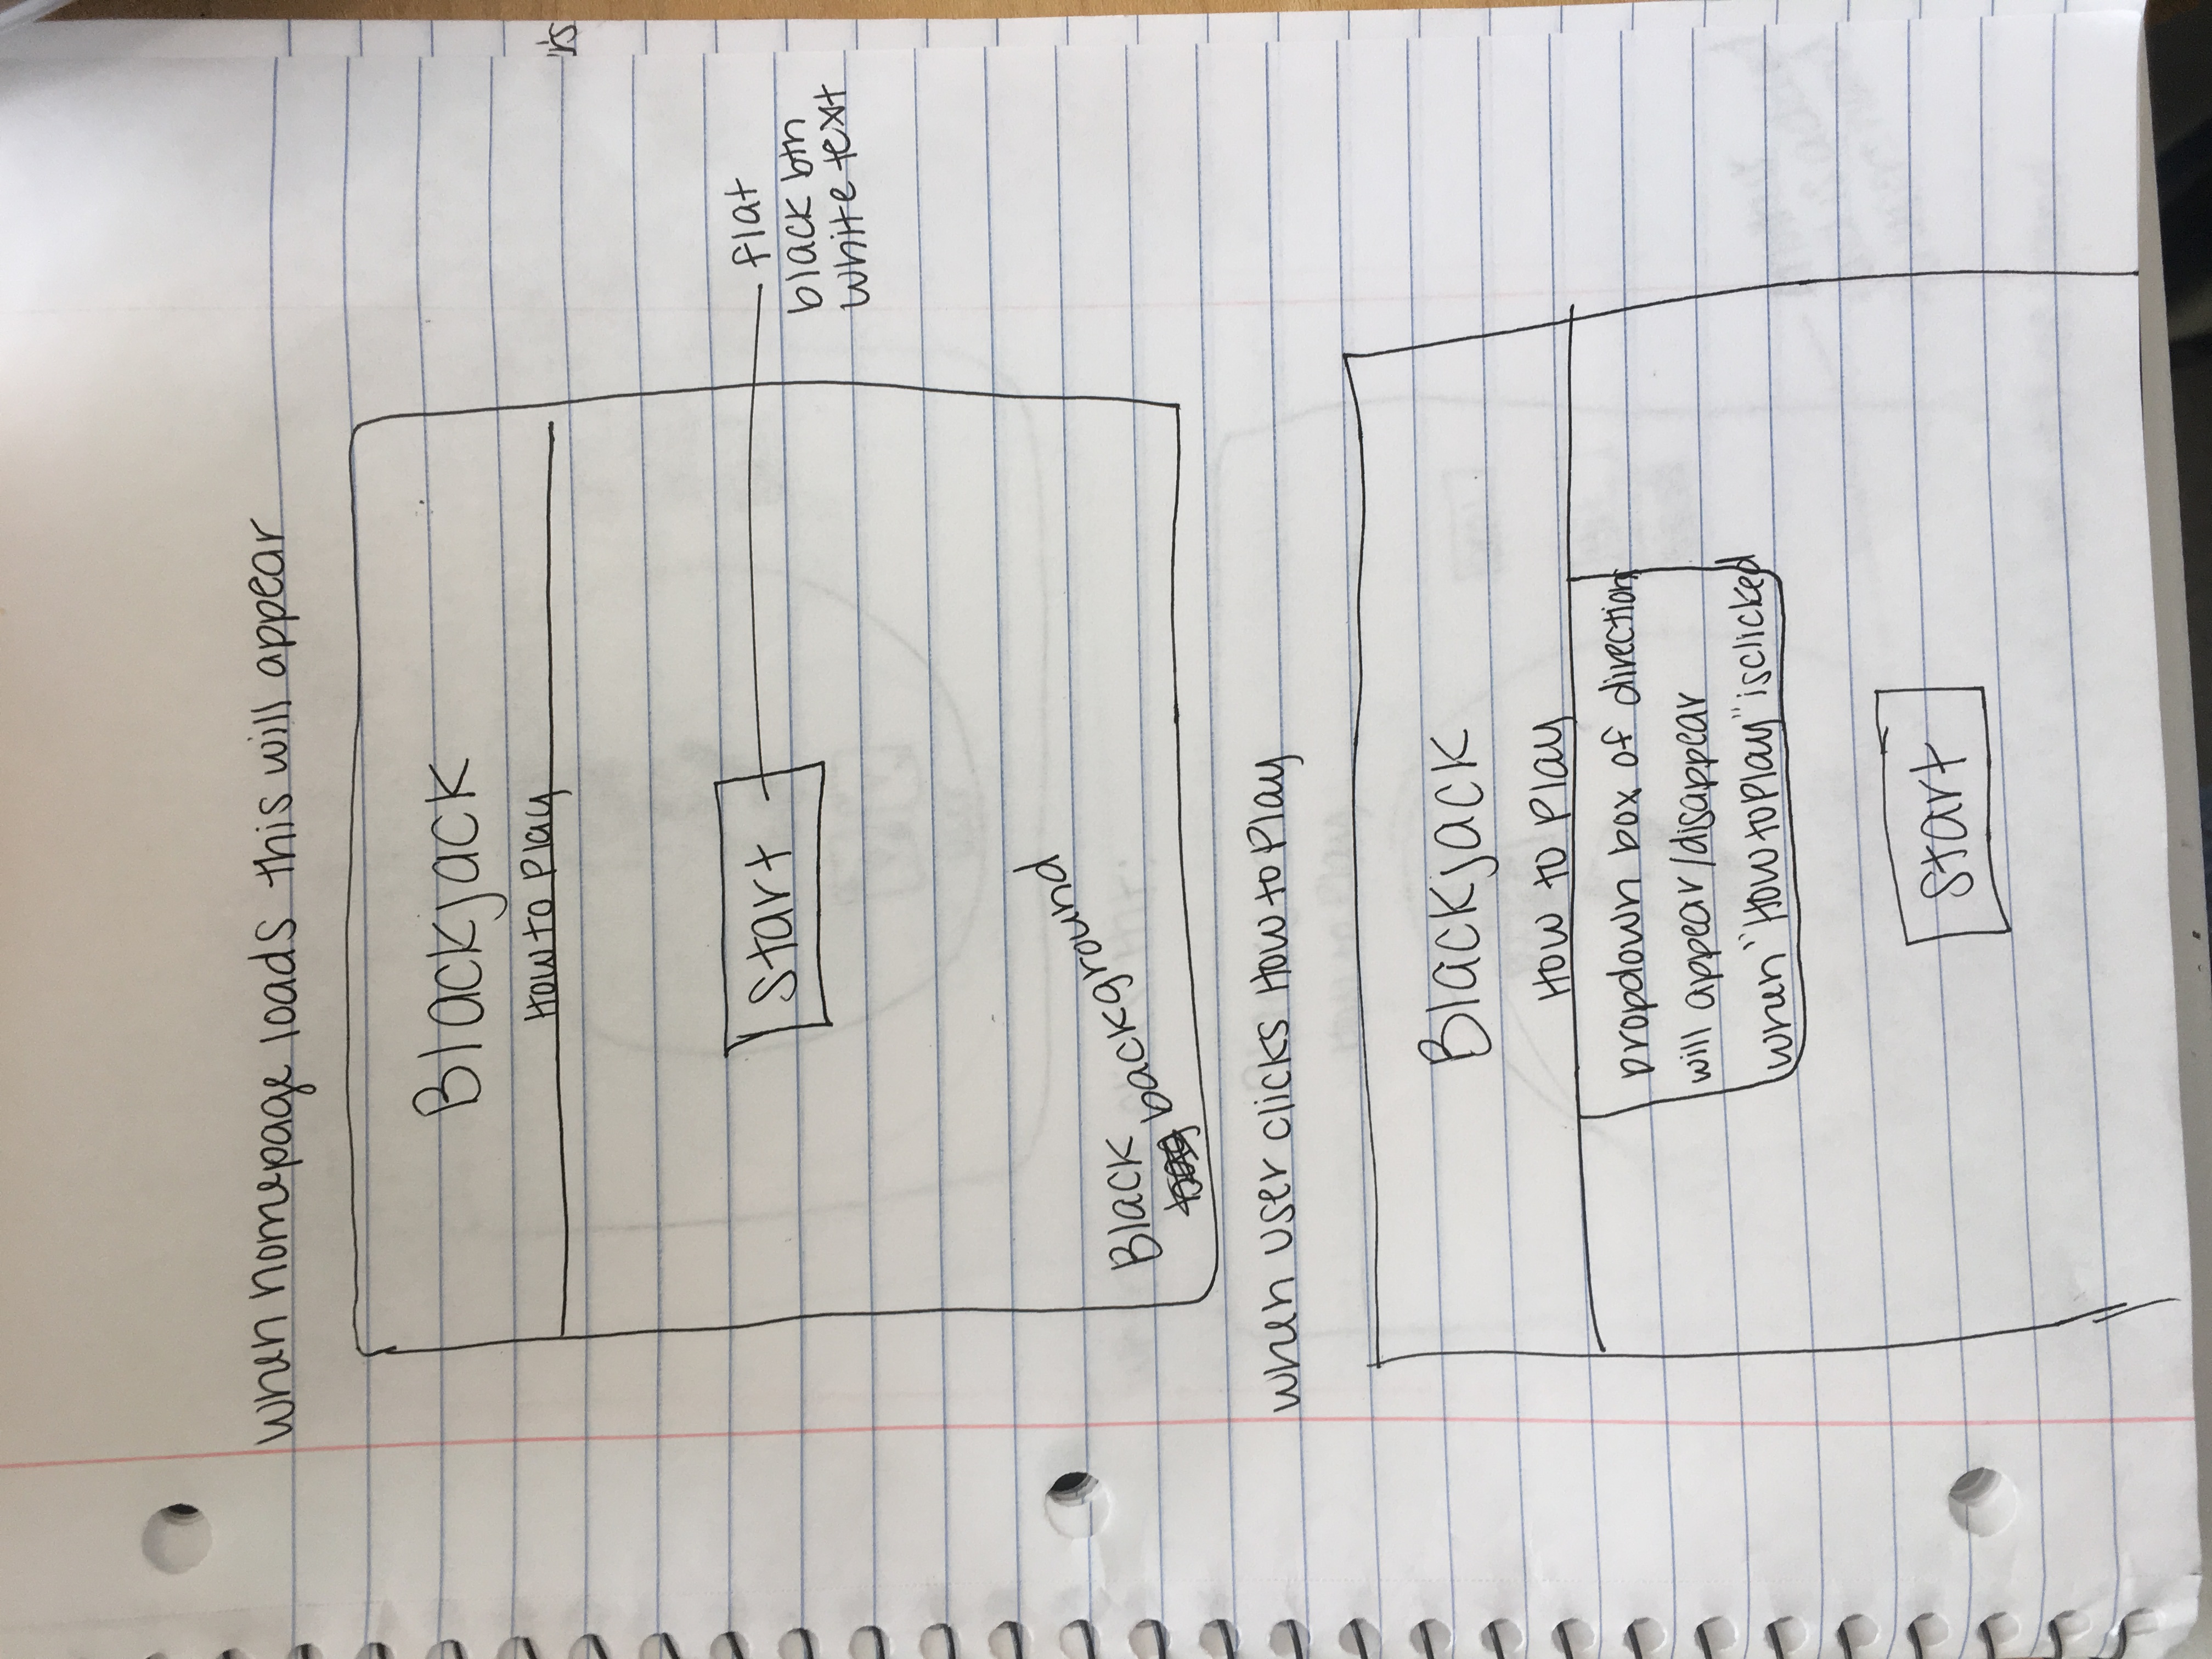 when homepage loads this will appear
Blackjack
How to Play
Start
flat
black btn
white text
Black
background
when user clicks How to Play
Blackjack
How to Play
Dropdown box of directions
will appear/disappear
when "How to Play" is clicked
Start